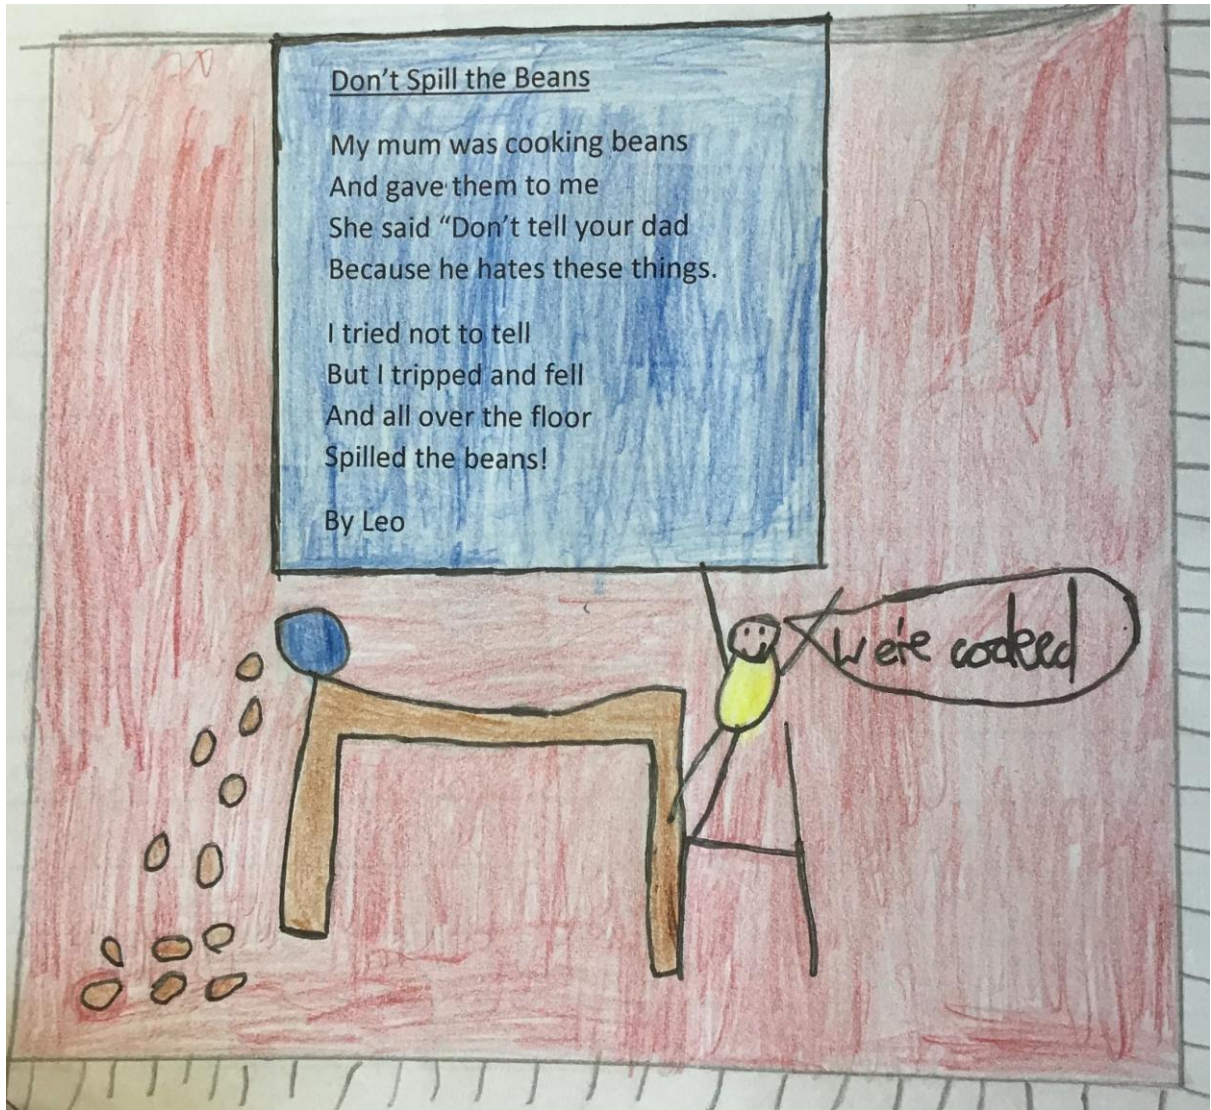 Don't Spill the Beans
My mum was cooking beans
And gave them to me
She said “Don't tell your dad
Because he hates these things.
I tried not to tell
But I tripped and fell
And all over the floor
Spilled the beans!
By Leo
we're cooked